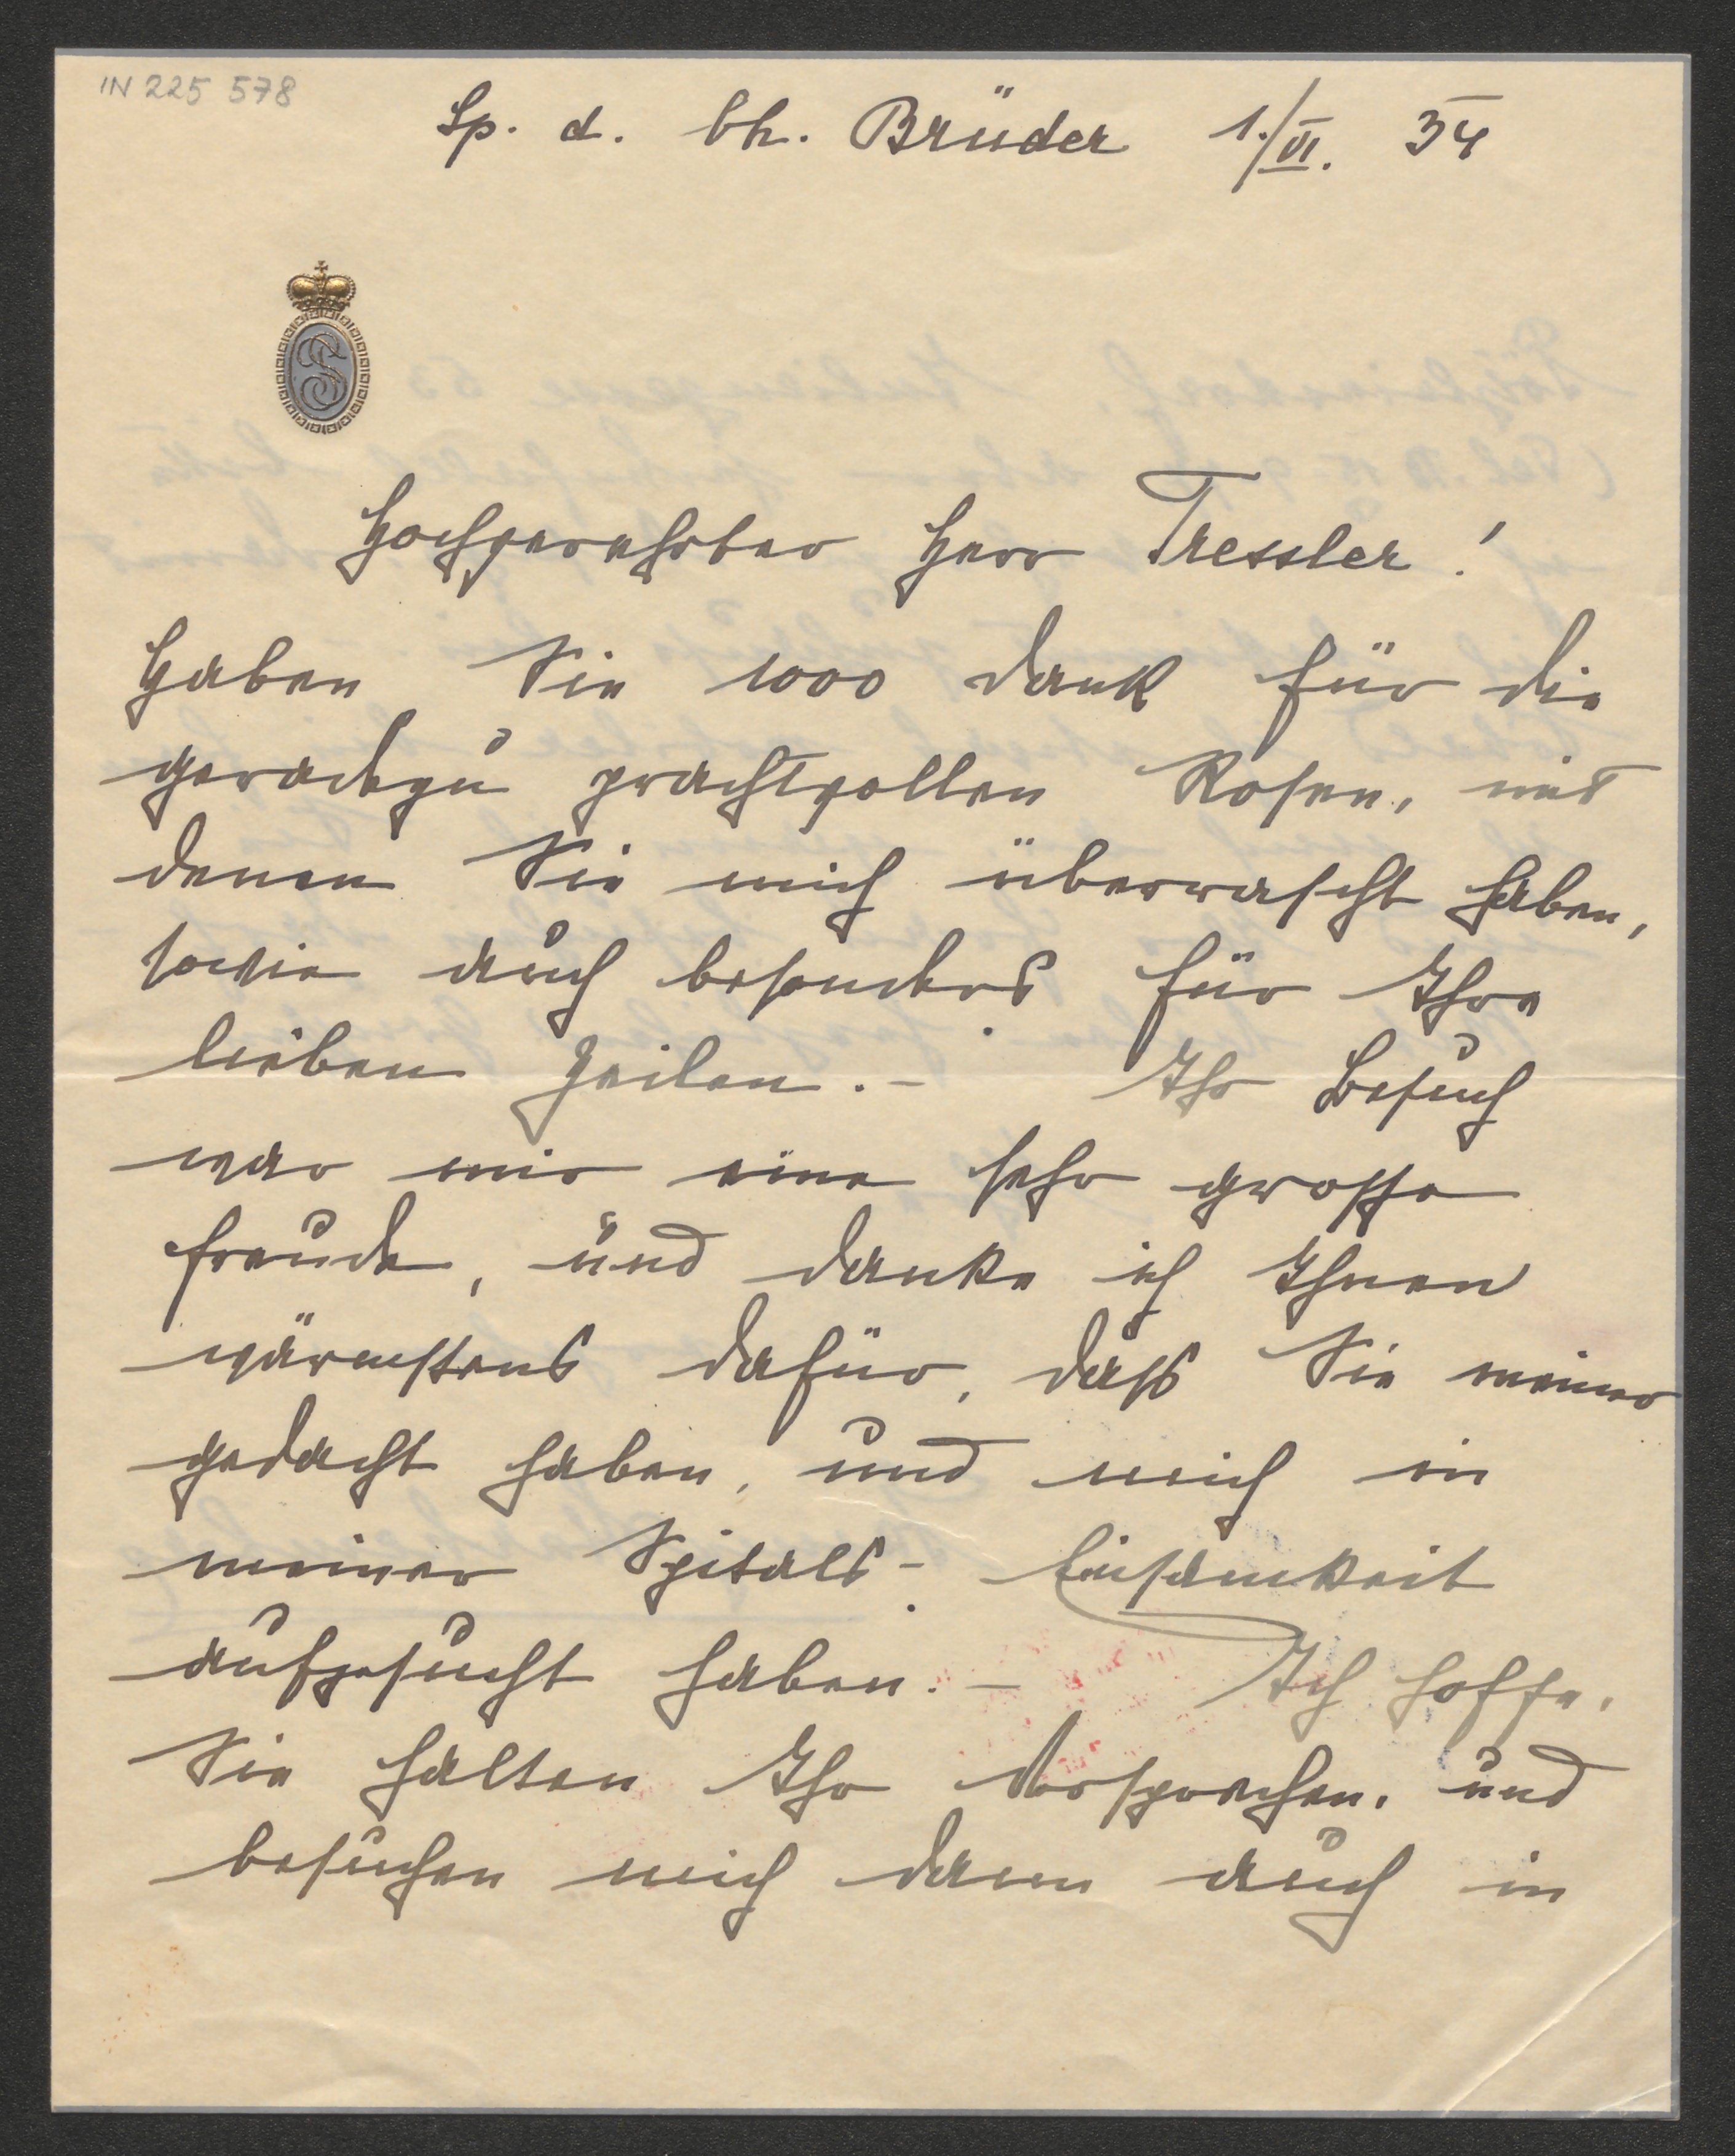 IN 225 578
Sp. d. bh. Brüder 1./VI. 34
Hochverehrter Herr Tressler!
Haben Sie 1000 Dank für die
geradezu prachtvollen Rosen, mit
denen Sie mich überrascht haben,
sowie auch besonders für Ihre
lieben Zeilen. – Ihr Besuch
war mir eine sehr grosse
Freude, und danke ich Ihnen
wärmstens dafür, dass Sie meiner
gedacht haben, und mich in
meiner Spitals- Einsamkeit
aufgesucht haben. – Ich hoffe,
Sie halten Ihr Versprechen, und
besuchen mich dann auch in